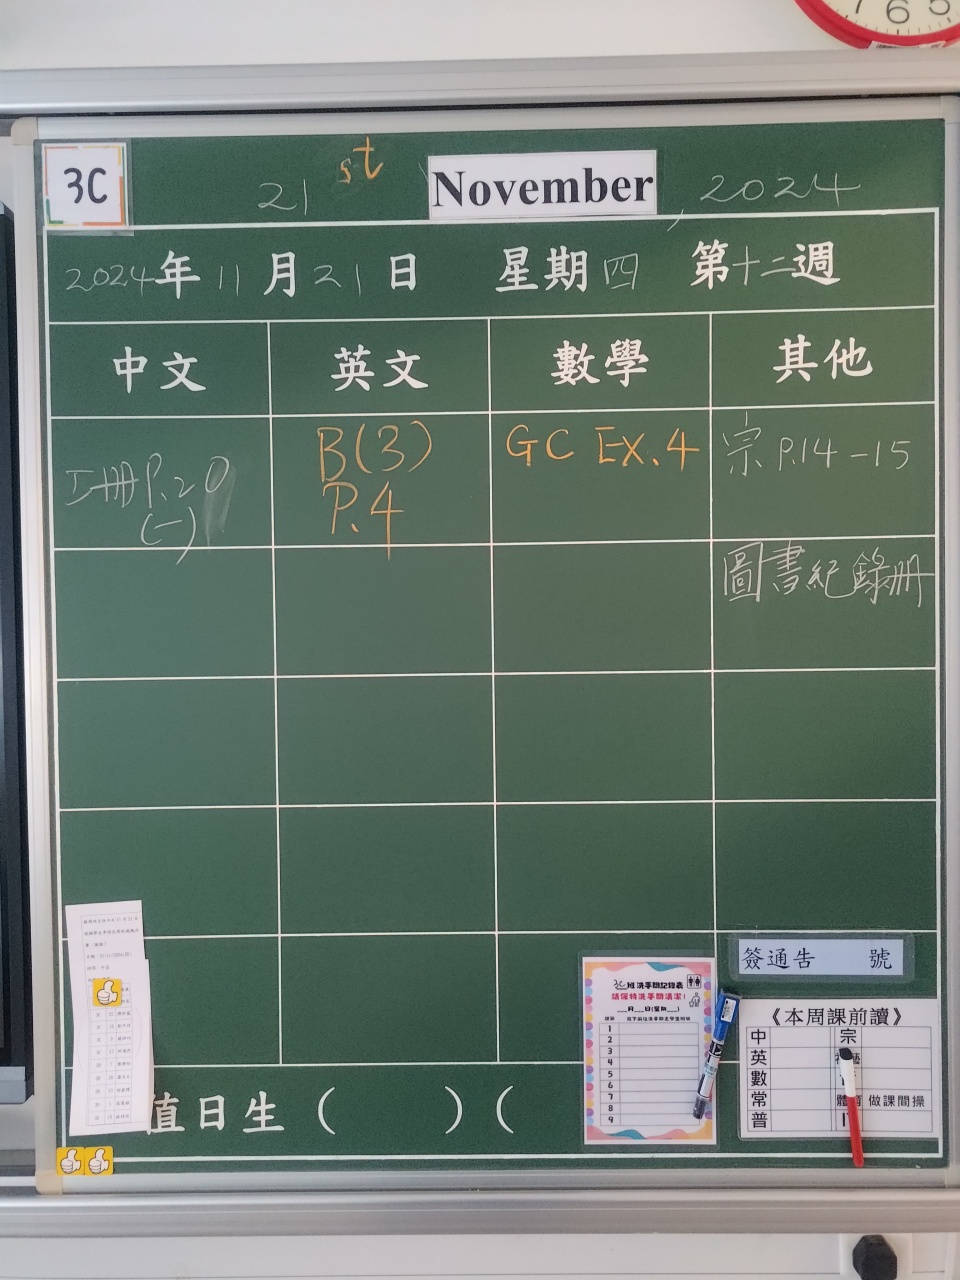 7 6 5
3C
21st November, 2024
2024年11月21日 星期四 第十二週
中文 英文 數學 其他
工冊P.20
(一)
B(3)
P.4
GC EX.4
宗 P.14-15
圖書紀錄冊
簽通告 號
3C班洗手間記錄表
請保持洗手間清潔!
__月__日(星期__)
1
2
3
4
5
6
7
8
9
《本周課前讀》
中 宗
英
數
常 體育 做課間操
普 IT
值日生( )(